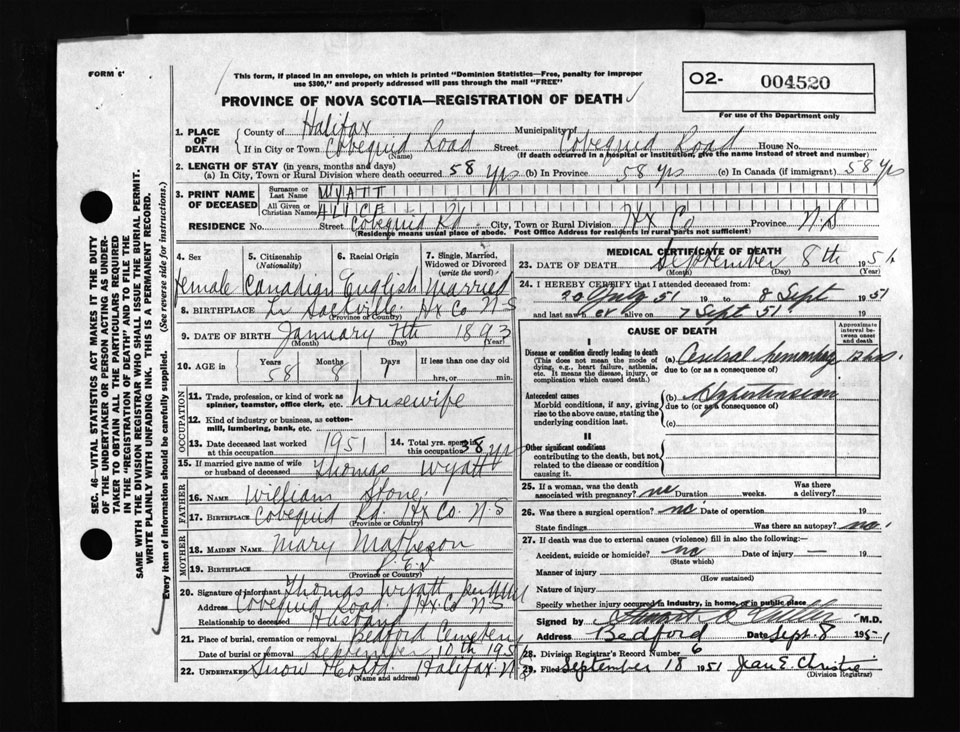 FORM 6
This form, if placed in an envelope, on which is printed "Dominion Statistics—Free, penalty for improper
use $300," and properly addressed will pass through the mail "FREE"
PROVINCE OF NOVA SCOTIA—REGISTRATION OF DEATH
O2- 004520
For use of the Department only
SEC. 46—VITAL STATISTICS ACT MAKES IT THE DUTY
OF THE UNDERTAKER OR PERSON ACTING AS UNDER-
TAKER TO OBTAIN ALL THE PARTICULARS REQUIRED
IN THE "REGISTRATION OF DEATH" AND TO FILE THE
SAME WITH THE DIVISION REGISTRAR WHO SHALL ISSUE THE BURIAL PERMIT.
WRITE PLAINLY WITH UNFADING INK. THIS IS A PERMANENT RECORD.
Every item of information should be carefully supplied. (See reverse side for instructions.)
1. PLACE OF DEATH
County of Halifax Municipality of
If in City or Town Cobequid Road Street Cobequid Road House No.
(Name) (If death occurred in a hospital or institution, give the name instead of street and number)
2. LENGTH OF STAY (in years, months and days)
(a) In City, Town or Rural Division where death occurred 58 yrs (b) In Province 58 yrs (c) In Canada (if immigrant) 58 yrs
3. PRINT NAME OF DECEASED
Surname or Last Name WYATT
All Given or Christian Names ALICE
RESIDENCE No. Street Cobequid Rd City, Town or Rural Division Hx Co Province N.S
(Residence means usual place of abode. Post Office Address for residents in rural parts not sufficient)
4. Sex 5. Citizenship (Nationality) 6. Racial Origin 7. Single, Married, Widowed or Divorced (write the word)
Female Canadian English Married
8. BIRTHPLACE Lr Sackville, Hx Co N S
(Province or Country)
9. DATE OF BIRTH January 7th 1893
(Month) (Day) (Year)
10. AGE in Years 58 Months 8 Days 1 If less than one day old
hrs, or min.
OCCUPATION
11. Trade, profession, or kind of work as spinner, teamster, office clerk, etc. housewife
12. Kind of industry or business, as cotton-mill, lumbering, bank, etc.
13. Date deceased last worked at this occupation 1951 14. Total yrs. spent in this occupation 38 yrs
15. If married give name of wife or husband of deceased Thomas Wyatt
FATHER
16. NAME William Stone
17. BIRTHPLACE Cobequid Rd. Hx Co. N.S
(Province or Country)
MOTHER
18. MAIDEN NAME Mary Matheson
19. BIRTHPLACE
(Province or Country)
20. Signature of informant Thomas Wyatt
Address Cobequid Road. Hx Co N S
Relationship to deceased Husband
21. Place of burial, cremation or removal Bedford Cemetery
Date of burial or removal September 10th 195
22. UNDERTAKER Snow Halifax N S
(Name and address)
MEDICAL CERTIFICATE OF DEATH
23. DATE OF DEATH September 8th 1951
(Month) (Day) (Year)
24. I HEREBY CERTIFY that I attended deceased from:
20 July 51 19 to 8 Sept 1951
and last saw her alive on 7 Sept 51 19
CAUSE OF DEATH
Approximate interval between onset and death
I
Disease or condition directly leading to death
(This does not mean the mode of dying, e.g., heart failure, asthenia, etc. It means the disease, injury, or complication which caused death.)
(a) Cerebral hemorrhage 12 hrs.
due to (or as a consequence of)
Antecedent causes
Morbid conditions, if any, giving rise to the above cause, stating the underlying condition last.
(b) Hypertension
due to (or as a consequence of)
(c)
II
Other significant conditions
contributing to the death, but not related to the disease or condition causing it.
25. If a woman, was the death associated with pregnancy? no Duration weeks. Was there a delivery?
26. Was there a surgical operation? no Date of operation 19
State findings Was there an autopsy? no
27. If death was due to external causes (violence) fill in also the following:—
Accident, suicide or homicide? no Date of injury — 19
(State which)
Manner of injury
(How sustained)
Nature of injury
Specify whether injury occurred in industry, in home, or in public place
Signed by M.D.
Address Bedford Date Sept. 8 1951
28. Division Registrar's Record Number 6
29. Filed September 18 1951 Jean E. Christie
(Division Registrar)